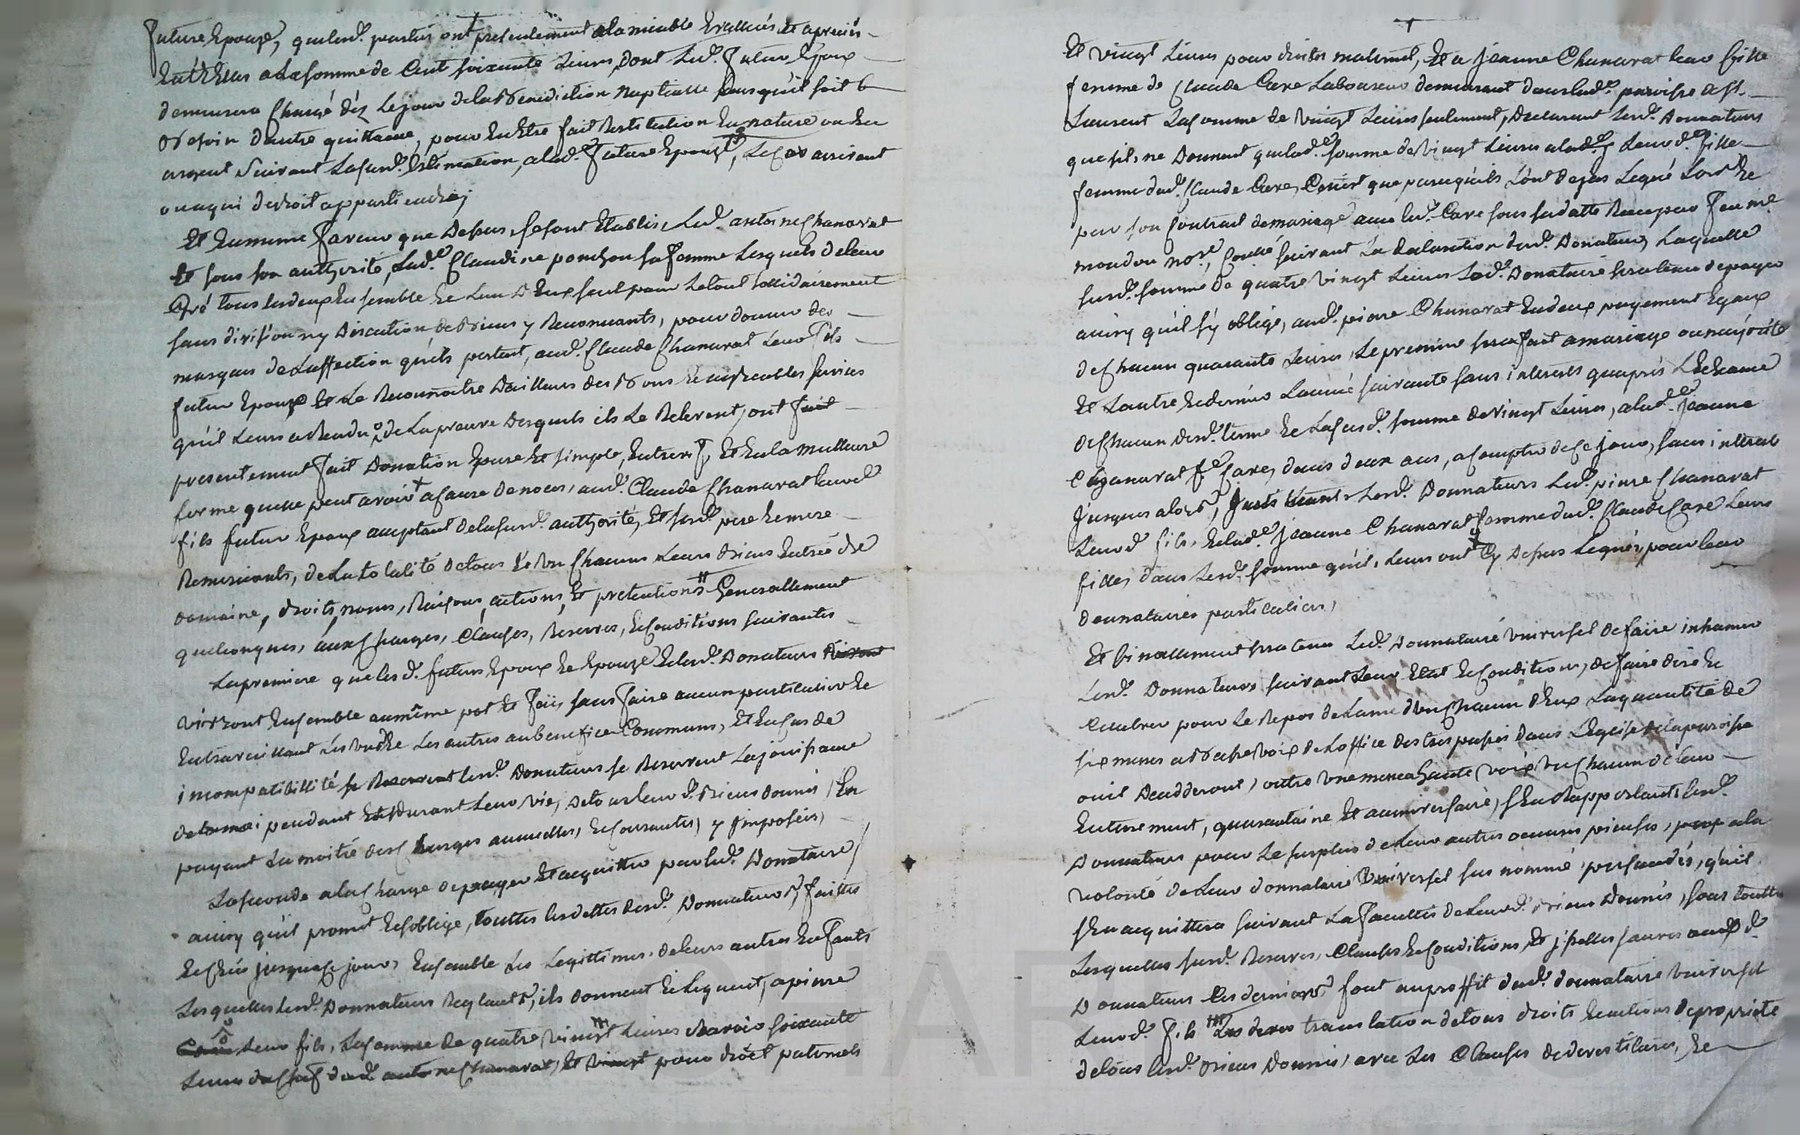 future Epouze, que lesd. parties ont presentement a lamiable Evalluées et apreciés
Entr'Elles a la somme de Cent soixante Livres, dont Led. futur Epoux
demeurera Chargé dez Le jour de la Benediction nuptialle sans qu'il soit b
besoin d'autre quittance, pour En Etre fait Restitution En nature ou En
argent Suivant La susd. Estimation, a lad. future Epouze, Le Cas arrivant
ou a qui de droit appartiendra;
Et En meme faveur que Depus, se sont Etablis, Led. antoine Chanavat
Et sous son authorité, Lad. Claudine ponchon sa femme Lesquels de leur
Gré tous les deux Ensemble Et L'un D'Eux seul pour Le tout sollidairement
sans division ny Discution de Biens y Renonceants, pour donner des
marques de L'affection qu'ils portent, aud. Claude Chanavat Leur fils
futur Epoux Et Le Reconnoitre D'ailleurs des Bons Et agreables services
qu'il Leurs a Rendu, de La preuve Desquels ils Le Relevent, ont fait
presentement fait Donation Pure Et simple, Entrevif, Et En la Meilleure
forme que ce peut avoir a Cause de noces, aud. Claude Chanavat Leurd.
fils futur Epoux acceptant de la susd. authorité, Et sesd. pere Et mere
Remerciants, de La totalité de tous Et Un Chacuns Leurs Biens Entrée de
domaine, droits, noms, Raisons, actions, Et pretentions Generallement
quelconques, aux Charges, Clauses, Reserves, Et Conditions suivantes
La premiere que lesd. futurs Epoux Et Epouze Et lesd. Donateurs
vivront Ensemble au même pot Et feu, sans faire aucun particulier Et
En travaillant Les Uns Et Les autres au benefice Commun, Et En Cas de
incompatibilité Lesd. Donateurs se Reservent La jouissance
pendant Et Durant Leur vie, De tous leursd. Biens donnés, En
payant La moitié des Charges annuelles, Et Courantes, y Imposées,
La seconde a la Charge de payer Et acquitter par led. Donataire,
ainsy qu'il promet Et s'oblige, touttes les dettes desd. Donnateurs, faittes
Et Crées jusqu'a Ce jour, Ensemble Les Legittimes de leurs autres Enfants
Lesquelles lesd. Donnateurs Reglant, ils donnent Et Leguent, a pierre
Leur fils, La somme de quatre vingt Livres Sçavoir soixante
Livres du Chef dud. antoine Chanavat, Et vingt pour droit paternels
Et vingt Livres pour droits maternel, Et a jeanne Chanavat leur fille
femme de Claude Care Laboureur demeurant dans lad. paroisse de St.
Laurent La somme de vingt Livres seulement, Declarant Lesd. Donnateurs
que s'ils ne Donnent que lad. somme de vingt Livres a lad. Leurd. fille
femme dud. Claude Care, C'est que parce qu'ils L'ont Deja Legué Lors de
par son Contrat de mariage avec led. Care sous sa datte Reçu par feu me
mondon nore, Coutte suivant La declaration desd. Donateurs, Laquelle
susd. somme de quatre vingt Livres Led. Donataire sera tenu de payer
ainsy qu'il s'y oblige, aud. pierre Chanavat En deux payement Egaux
de Chacun quarante Livres, Le premier sera fait a mariage ou majorité
Et L'autre Et dernier L'année suivante sans interets qu'après L'Echeance
de Chacun desd. terme Et La susd. somme de vingt Livres, a lad. jeanne
Chanavat fe Care, dans deux ans, a Compter de Ce jour, sans interet
jusques alors, Lesd. Donnateurs Led. pierre Chanavat
Leurd. fils, Et lad. jeanne Chanavat femme dud. Claude Care Leurs
filles dans Lesd. somme qu'ils Leurs ont Cy Depus Legués, pour leur
donnataires particuliers,
Et finallement sera tenu Led. Donnataire universel de faire inhumer
Lesd. Donnateurs suivant Leur Etat Et Condition, de faire dire Et
Celebrer pour Le Repos de L'ame d'Un Chacun d'Eux La quantité de
six messes a Basse voix de L'office des trepassés dans L'Eglise de la paroisse
ou il Deceddront, outre Une messe a haute voix Un Chacun de leur
Enterrement, quarantaine Et anniversaire, s'En Rapportants lesd.
Donnateurs pour Le surplus de leur autres oeuvres pieuses, a la
volonté de Leur donnataire Universel sus nommé persuadés, qu'il
s'En acquittera suivant La facultés de Leursd. Biens Donnés, sous touttes
Lesquelles susd. Reserves, Clauses Et Conditions, Et jcelles sauves auxd.
Donnateurs Ces derniers font au proffit dud. donnataire universel
Leurd. fils translation de tous droits Et actions de proprieté
de tous lesd. Biens Donnés, avec Les Clauses de devestiture, Et